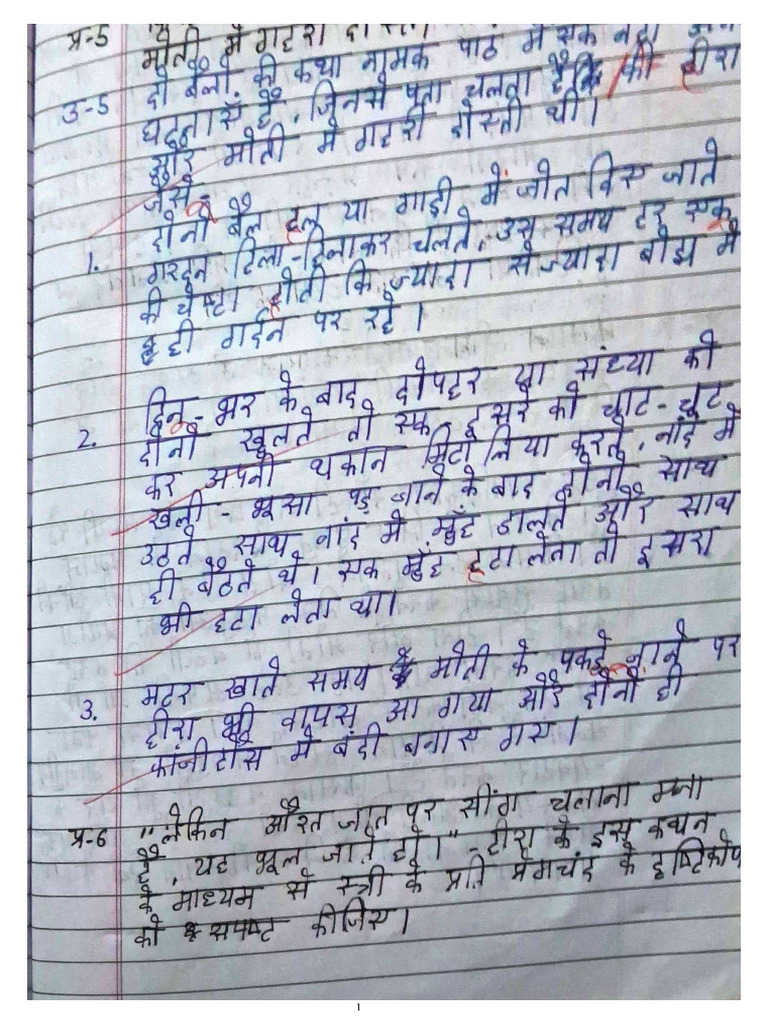 प्र-5
मोती में गहरी दोस्ती
दो बैलों की कथा नामक पाठ में एक
उ-5 घटनाएँ है, जिनसे पता चलता है कि की हीरा
और मोती में गहरी दोस्ती थी।
जैसे-
1. दोनों बैल हल या गाड़ी में जोत दिए जाते
गरदन हिला-हिलाकर चलते, उस समय हर एक
की चेष्टा होती कि ज्यादा से ज्यादा बोझ मे
ही गर्दन पर रहे।
2. दिन-भर के बाद दोपहर या संध्या को
दोनों खुलते तो एक दूसरे को चाट-चूट
कर अपनी थकान मिटा लिया करते, नांद में
खली-भूसा पड़ जाने के बाद दोनों साथ
उठते साथ नांद में मुँह डालते और साथ
ही बैठते थे। एक मुँह हटा लेता तो दूसरा
भी हटा लेता था।
3. मटर खाते समय मोती के पकड़े जाने पर
हीरा भी वापस आ गया और दोनों ही
कांजीहौस में बंदी बनाए गए।
प्र-6 "लेकिन औरत जात पर सींग चलाना मना
है, यह भूल जाते हो।"-हीरा के इस कथन
के माध्यम से स्त्री के प्रति प्रेमचंद के दृष्टिकोण
को स्पष्ट कीजिए।
१